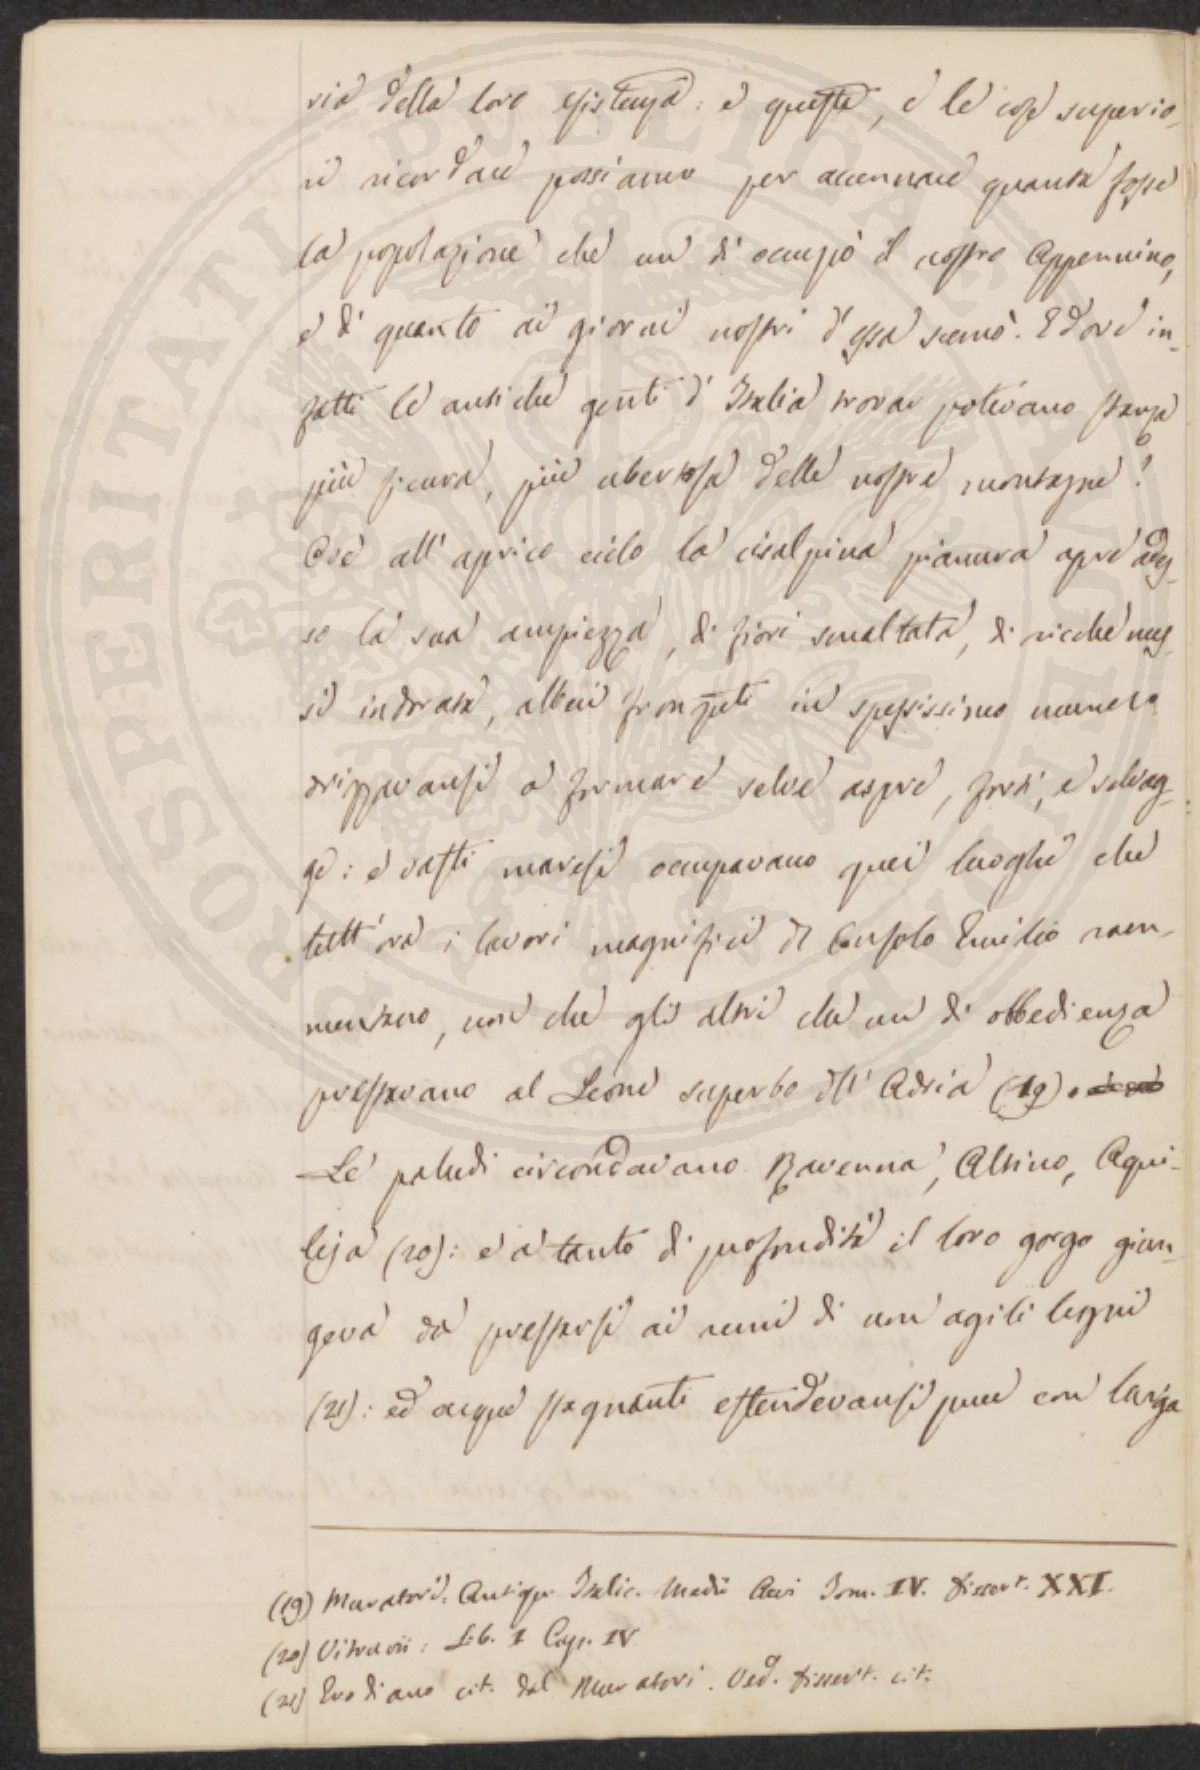 ria della loro esistenza: e queste, e le cose superio-
ri ricordare possiamo per accennare quanta fosse
la popolazione che un dì occupò il nostro Appennino,
e di quanto ai giorni nostri d'essa scemò. E dove in-
fatti le antiche genti d'Italia trovar potevano stanza
più sicura, più ubertosa delle nostre montagne?
Ove all'aprico cielo la cisalpina pianura apre ades-
so la sua ampiezza, di fiori smaltata, di ricche mes-
si indorata, alberi fronzuti in spessissimo numero
drizzavansi a formare selve aspre, forti, e selvag-
ge: e vasti maresi occupavano quei luoghi che
tutt'ora i lavori magnifici di Consolo Emilio ram-
mentano, non che gli altri che un dì obbedienza
prestavano al Leone superbo dell'Adria (19).
Le paludi circondavano Ravenna, Altino, Aqui-
leja (20): e a tanto di profondità il loro gorgo giun-
geva da prestarsi ai remi di non agili legni
(21): ed acque stagnanti estendevansi pure con larga
(19) Muratori. Antiqu. Italic. Medii Aevi Tom. IV. Dissert. XXI.
(20) Vitruvii: Lib. I Cap. IV
(21) Erodiano cit. dal Muratori. Ved. Dissert. cit.
PROSPERITATI PUBLICAE AUGENDAE